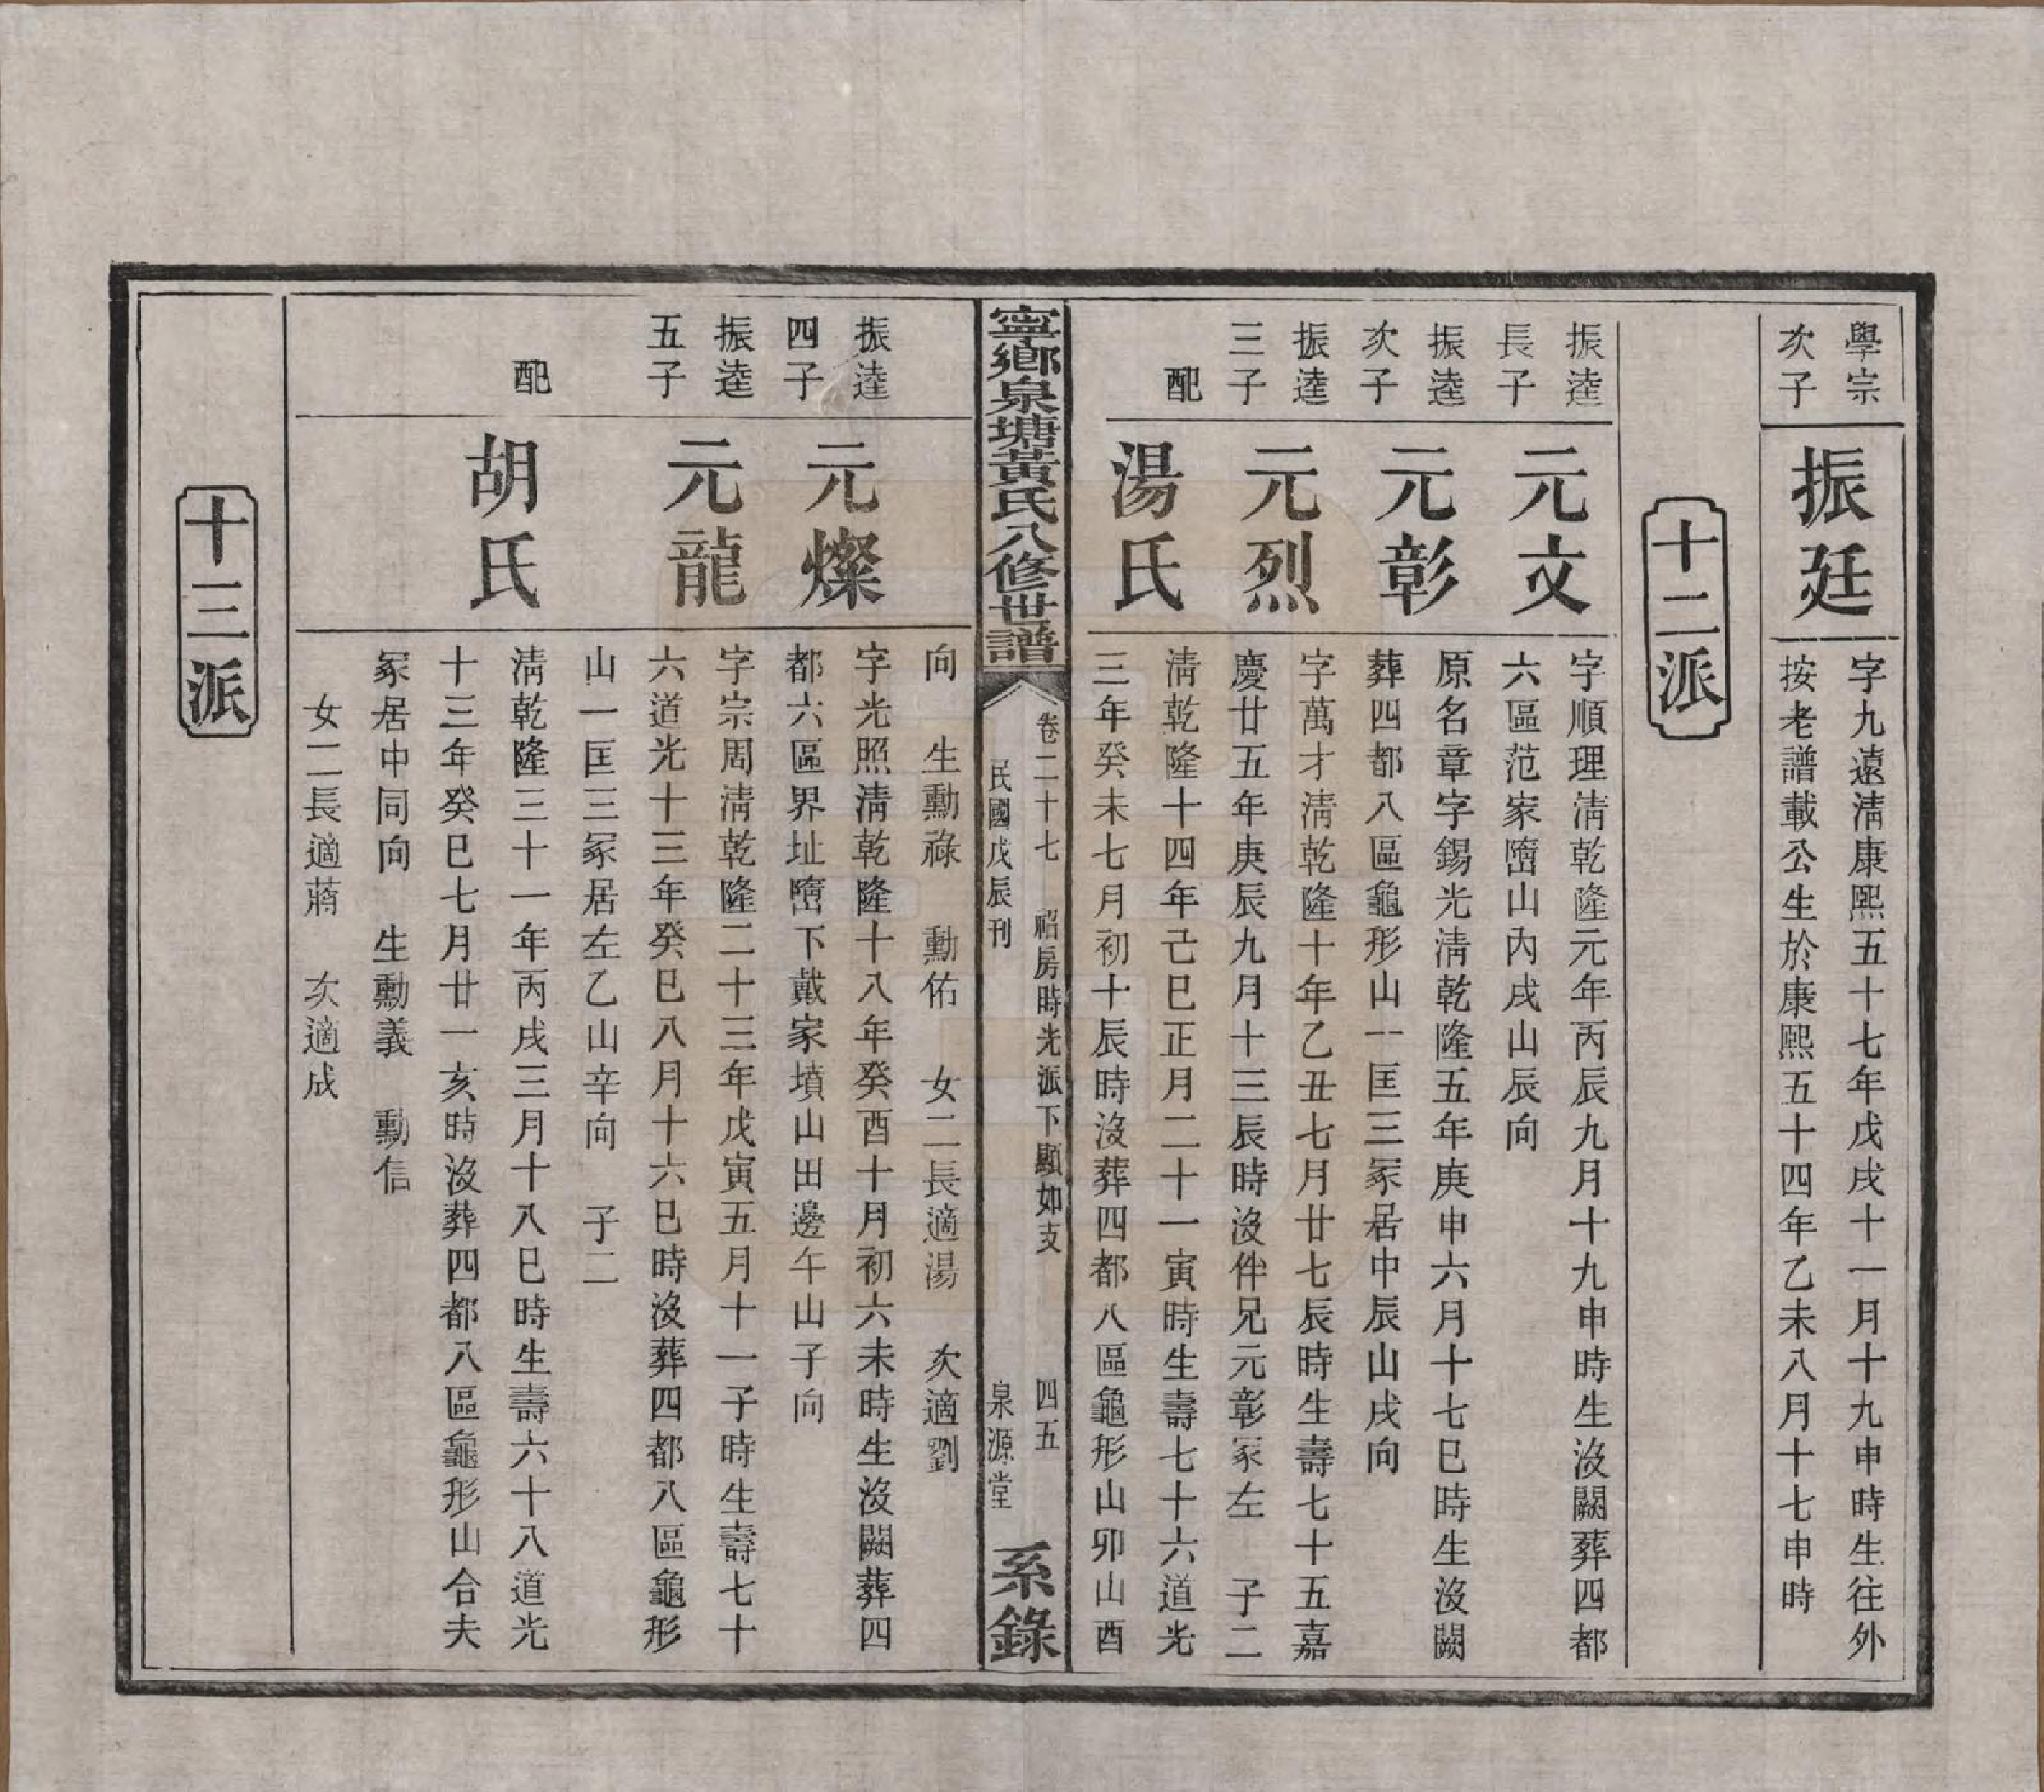 學宗
次子
振廷
字九遠淸康熙五十七年戊戌十一月十九申時生往外
按老譜載公生於康熙五十四年乙未八月十七申時
十二派
振逵
長子
元文
字順理淸乾隆元年丙辰九月十九申時生沒闕葬四都
六區范家㘰山內戌山辰向
振逵
次子
元彰
原名章字錫光淸乾隆五年庚申六月十七巳時生沒闕
葬四都八區龜形山一匡三冢居中辰山戌向
振逵
三子
元烈
字萬才淸乾隆十年乙丑七月廿七辰時生壽七十五嘉
慶廿五年庚辰九月十三辰時沒件兄元彰冢左　子二
配
湯氏
淸乾隆十四年己巳正月二十一寅時生壽七十六道光
三年癸未七月初十辰時沒葬四都八區龜形山卯山酉
寧鄉泉塘黃氏八修世譜
卷二十七　昭房時光派下顯如支　四五
民國戊辰刊　泉源堂
系錄
向　生勳祿　勳佑　女二長適湯　次適劉
振逵
四子
元燦
字光照淸乾隆十八年癸酉十月初六未時生沒闕葬四
都六區界址㘰下戴家墳山出邊午山子向
振逵
五子
元龍
字宗周淸乾隆二十三年戊寅五月十一子時生壽七十
六道光十三年癸巳八月十六巳時沒葬四都八區龜形
山一匡三冢居左乙山辛向　子二
配
胡氏
淸乾隆三十一年丙戌三月十八巳時生壽六十八道光
十三年癸巳七月廿一亥時沒葬四都八區龜形山合夫
冢居中同向　生勳義　勳信
女二長適蔣　次適成
十三派